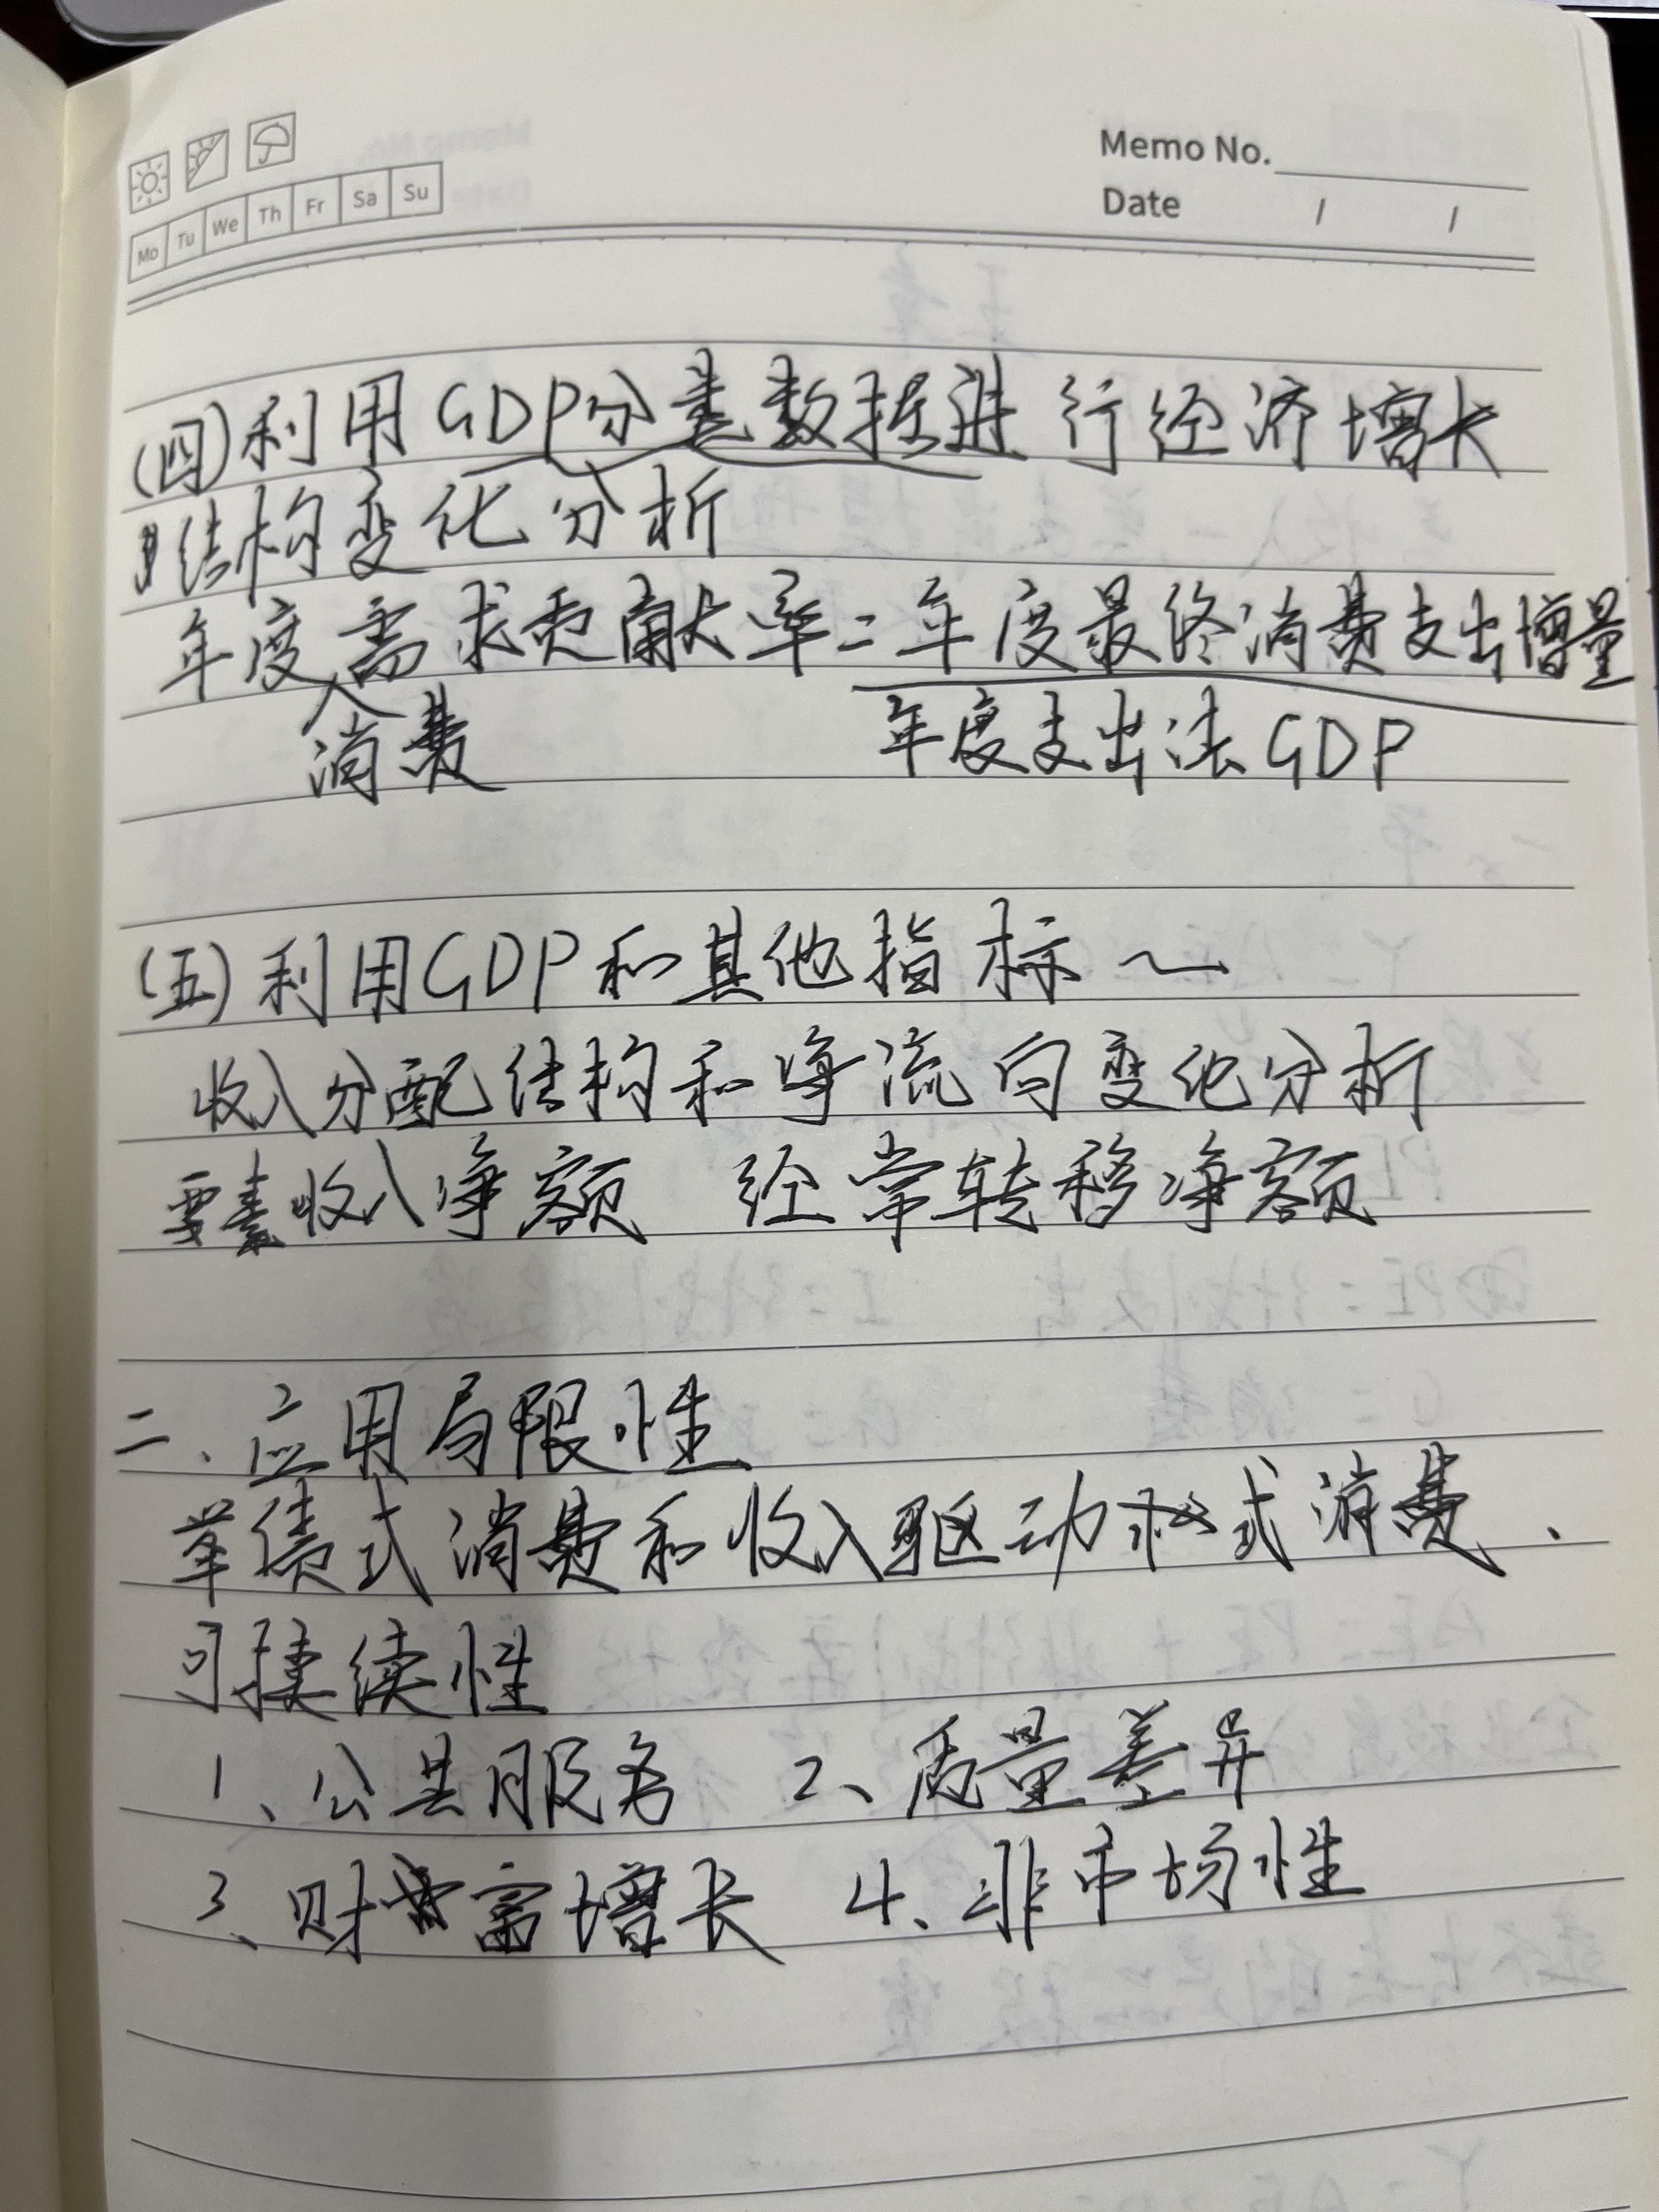 Memo No.
Mo Tu We Th Fr Sa Su
Date / /
(四)利用GDP分类数据进行经济增长
结构变化分析
年度消费需求贡献率=年度最终消费支出增量
年度支出法GDP
(五)利用GDP和其他指标~
收入分配结构和净流向变化分析
要素收入净额 经常转移净额
二、应用局限性
举债式消费和收入驱动式消费、
可持续性
1、公共服务 2、质量差异
3、财富增长 4、非市场性